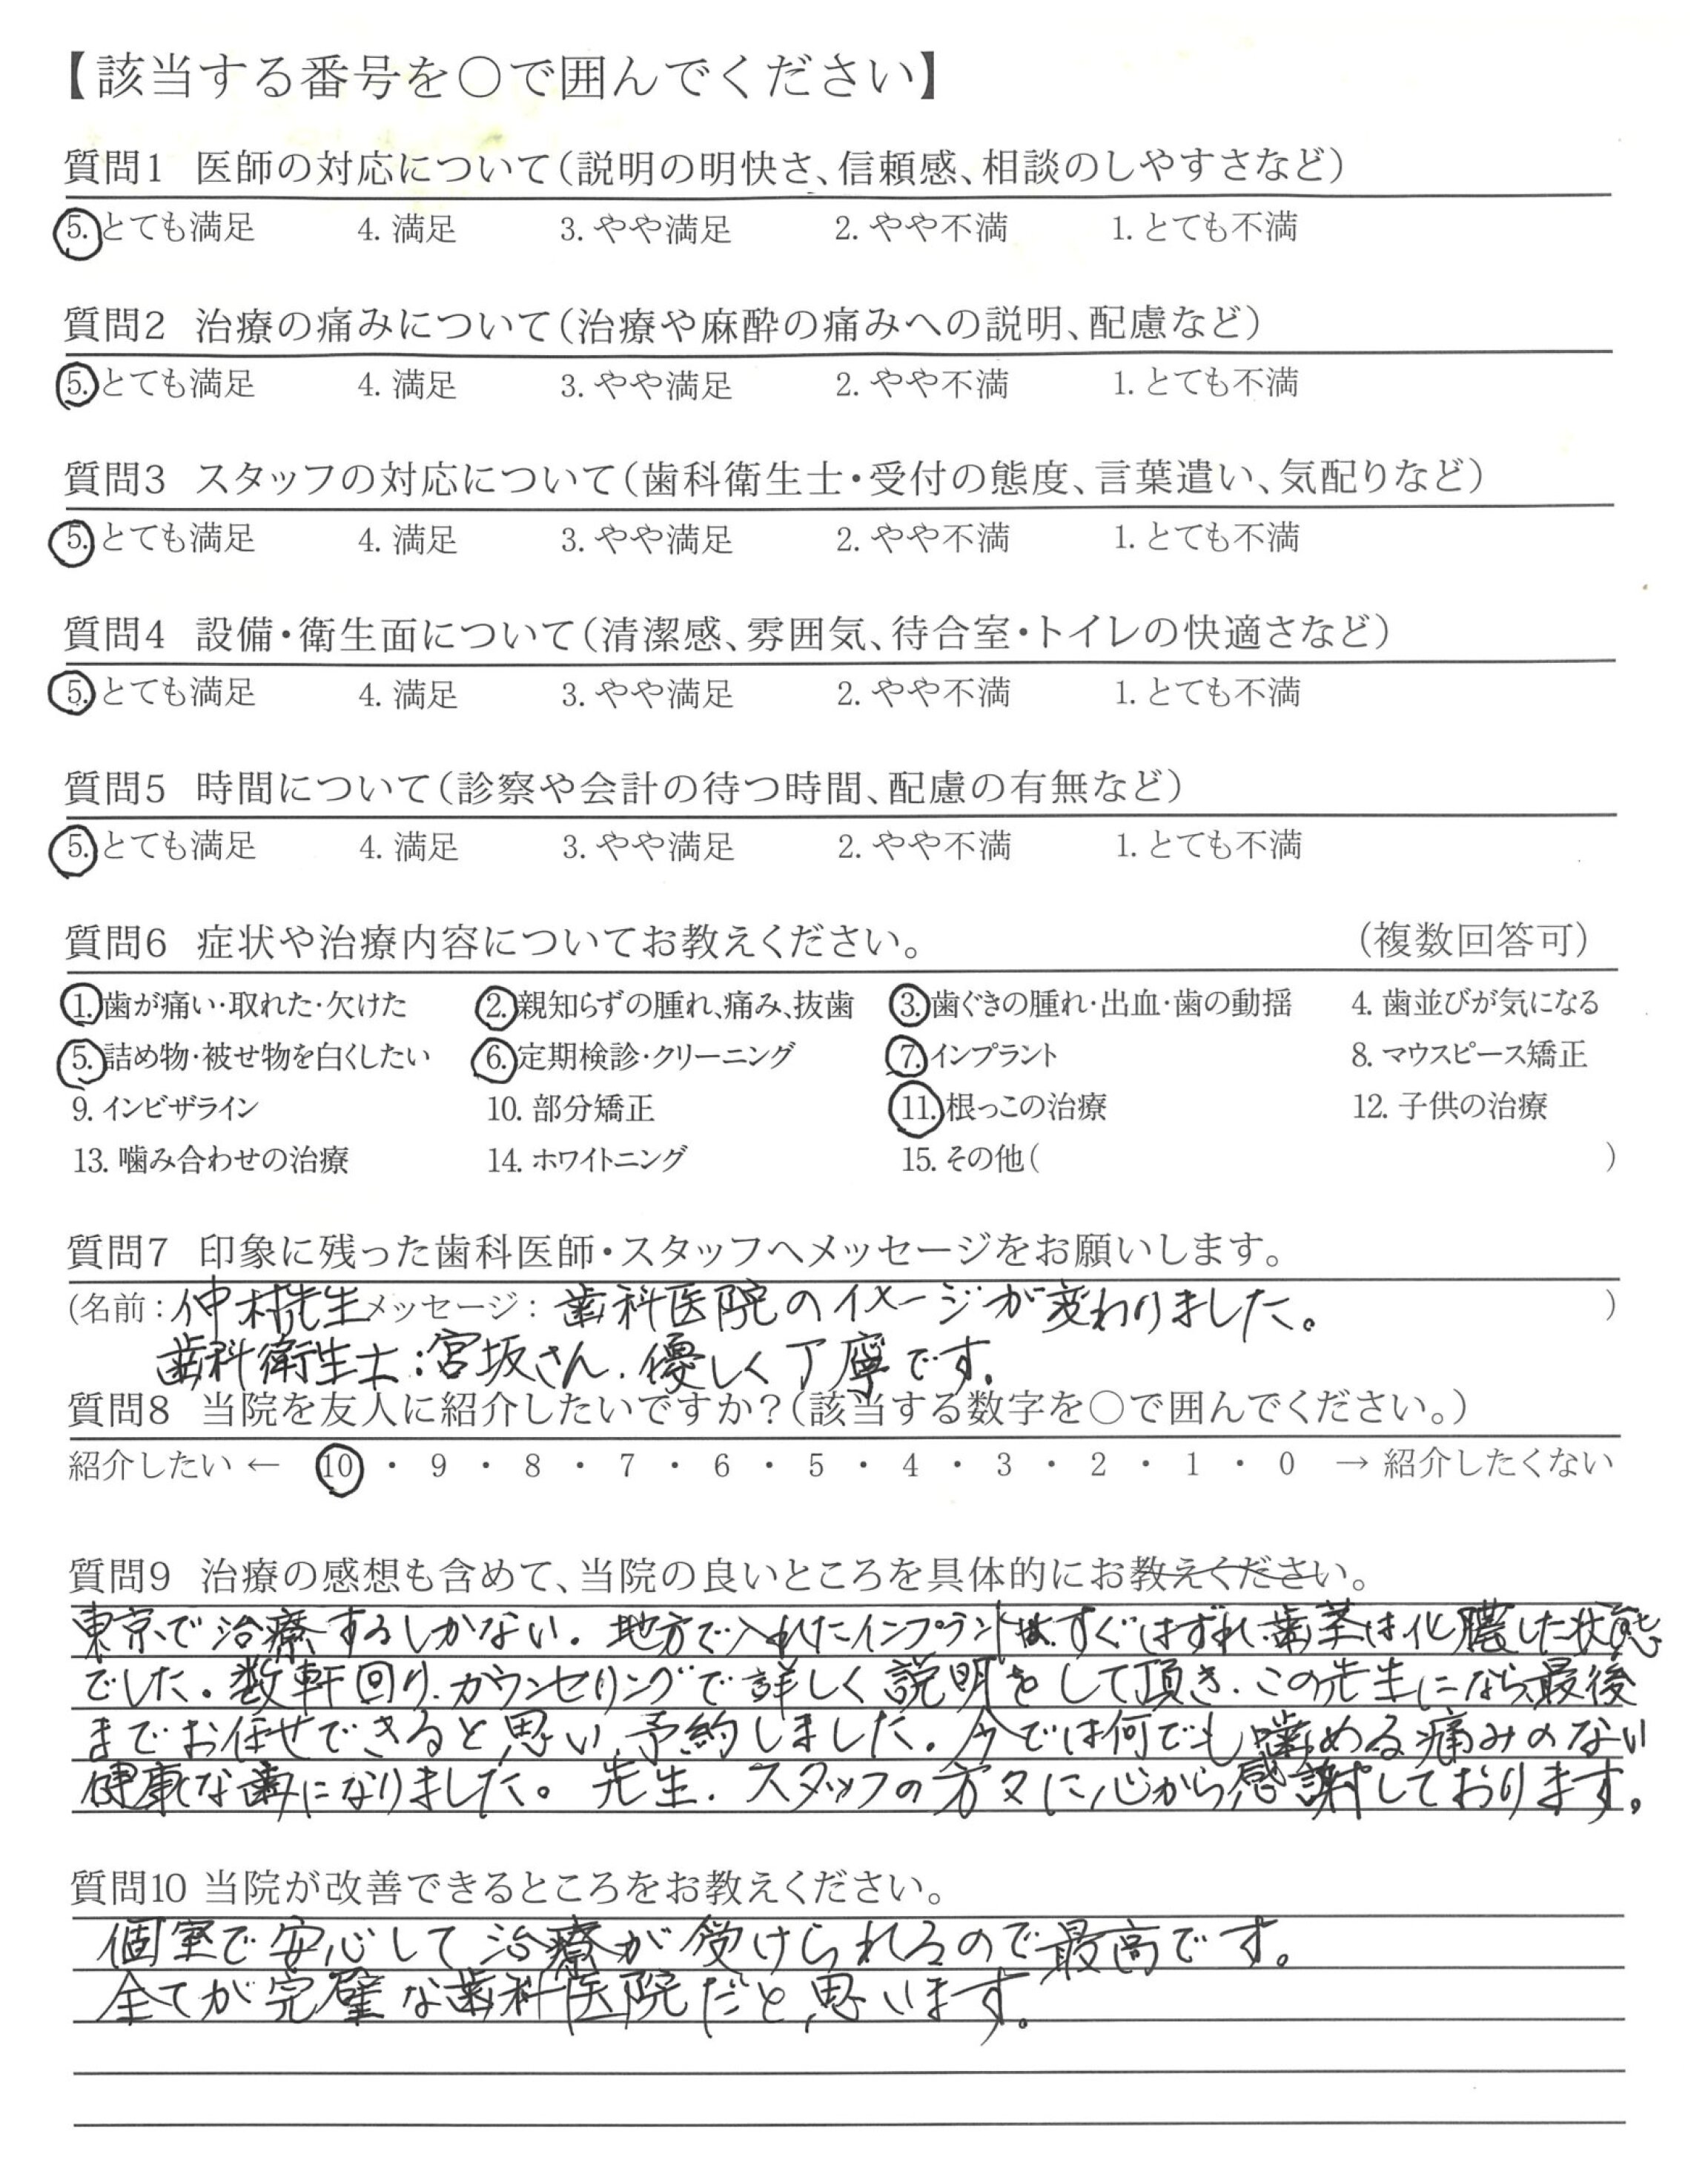 【該当する番号を〇で囲んでください】
質問1 医師の対応について(説明の明快さ、信頼感、相談のしやすさなど)
5. とても満足 4. 満足 3. やや満足 2. やや不満 1. とても不満
質問2 治療の痛みについて(治療や麻酔の痛みへの説明、配慮など)
5. とても満足 4. 満足 3. やや満足 2. やや不満 1. とても不満
質問3 スタッフの対応について(歯科衛生士・受付の態度、言葉遣い、気配りなど)
5. とても満足 4. 満足 3. やや満足 2. やや不満 1. とても不満
質問4 設備・衛生面について(清潔感、雰囲気、待合室・トイレの快適さなど)
5. とても満足 4. 満足 3. やや満足 2. やや不満 1. とても不満
質問5 時間について(診察や会計の待つ時間、配慮の有無など)
5. とても満足 4. 満足 3. やや満足 2. やや不満 1. とても不満
質問6 症状や治療内容についてお教えください。 (複数回答可)
1. 歯が痛い・取れた・欠けた 2. 親知らずの腫れ、痛み、抜歯 3. 歯ぐきの腫れ・出血・歯の動揺 4. 歯並びが気になる
5. 詰め物・被せ物を白くしたい 6. 定期検診・クリーニング 7. インプラント 8. マウスピース矯正
9. インビザライン 10. 部分矯正 11. 根っこの治療 12. 子供の治療
13. 噛み合わせの治療 14. ホワイトニング 15. その他( )
質問7 印象に残った歯科医師・スタッフへメッセージをお願いします。
(名前:仲村先生 メッセージ:歯科医院のイメージが変わりました。 )
歯科衛生士:宮坂さん、優しく丁寧です。
質問8 当院を友人に紹介したいですか?(該当する数字を〇で囲んでください。)
紹介したい ← 10 ・ 9 ・ 8 ・ 7 ・ 6 ・ 5 ・ 4 ・ 3 ・ 2 ・ 1 ・ 0 → 紹介したくない
質問9 治療の感想も含めて、当院の良いところを具体的にお教えください。
東京で治療するしかない。地方で入れたインプラントは、すぐはずれ、歯茎は化膿した状態
でした。数軒回り、カウンセリングで詳しく説明をして頂き、この先生になら最後
までお任せできると思い、予約しました。今では何でも噛める痛みのない
健康な歯になりました。先生、スタッフの方々に心から感謝しております。
質問10 当院が改善できるところをお教えください。
個室で安心して治療が受けられるので最高です。
全てが完璧な歯科医院だと思います。